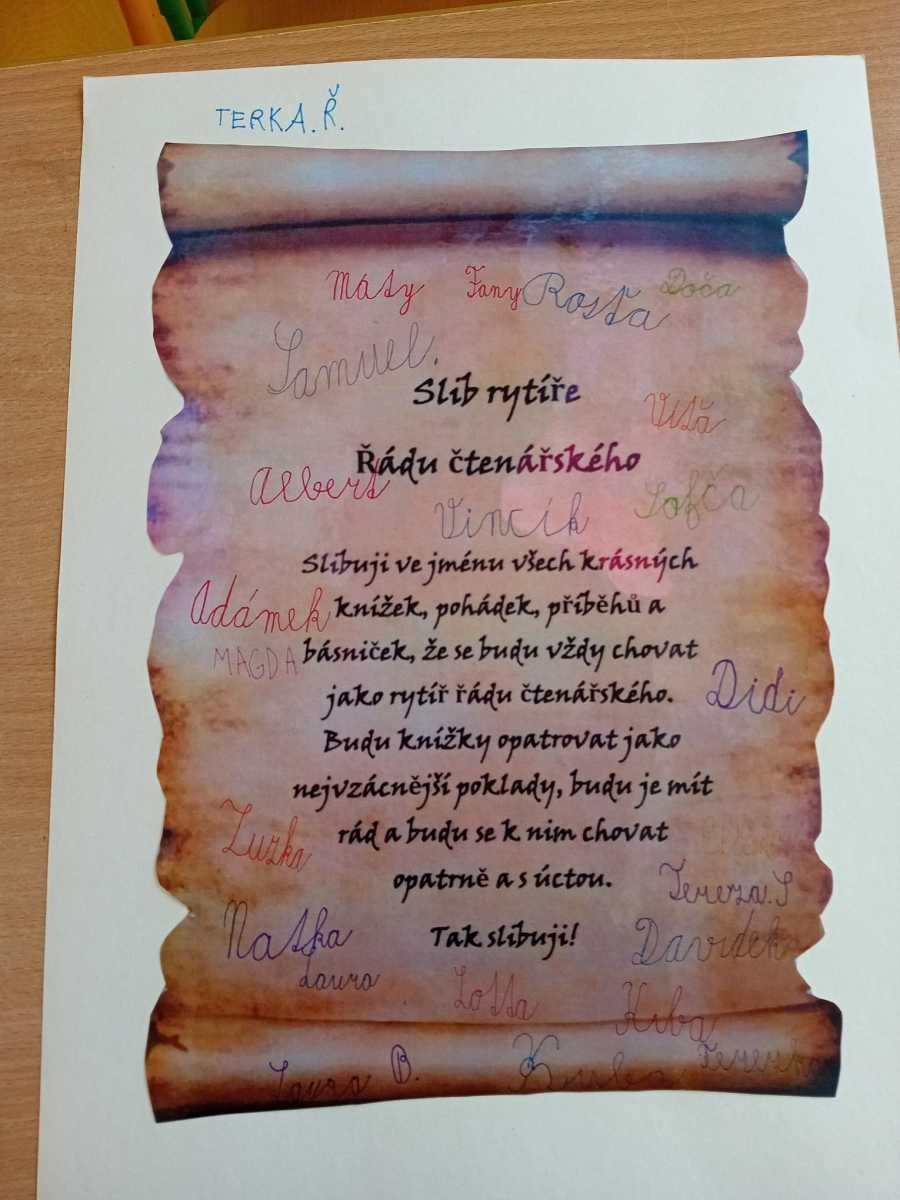 TERKA.Ř.
Máty Fany Rosťa Doča
Samuel.
Slib rytíře
Víťa
Řádu čtenářského
Albert
Vincík Sofča
Slibuji ve jménu všech krásných
Adámek knížek, pohádek, příběhů a
MAGDA básniček, že se budu vždy chovat
jako rytíř řádu čtenářského. Didi
Budu knížky opatrovat jako
nejvzácnější poklady, budu je mít
Zuzka rád a budu se k nim chovat
opatrně a s úctou. Tereza.S
Natka Tak slibuji! Davídek
Laura
Lotta Kuba
B. Terezka